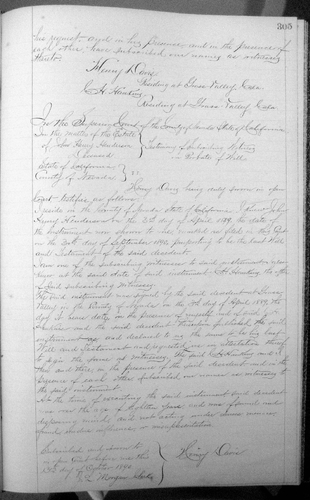 305
his request and in his presence and in the presence of
each other, have subscribed our names as witnesses
thereto
Henry Davis
Residing at Grass Valley, Cala.
Residing at Grass Valley, Cala.
In the Superior Court of the County of Nevada State of California
In the matter of the Estate
of Henry Henderson
Deceased
Testimony of Subscribing Witness
to Probate of Will
State of California
County of Nevada
ss.
Henry Davis being duly sworn in open
Court testifies as follows
I reside in the County of Nevada, State of California. I knew John
Henry Henderson on the 2nd day of April 1889, the date of
the instrument now shown to me, marked as filed in this Court
on the day of September 1890, purporting to be the last Will
and Testament of the said decedent.
I am one of the subscribing witnesses to said instrument. I also
knew at the said date of said instrument the other
of said subscribing witnesses
The said instrument was signed by the said decedent at Grass
Valley in the County of Nevada on the day of April 1889, the
day it bears date, in the presence of myself and of said
and the said decedent thereupon published the said
instrument as and declared to us the same to be his last
Will and Testament and requested us in attestation thereof
to sign the same as witnesses. The said and I
then and there, in the presence of the said decedent and in the
presence of each other subscribed our names as witnesses to
the said instrument.
At the time of executing the said instrument said decedent
was over the age of eighteen years and was of sound and
disposing mind, and not acting under duress menace
fraud, undue influence, or misrepresentation
Subscribed and sworn to
before me this
day of 1890
Henry Davis